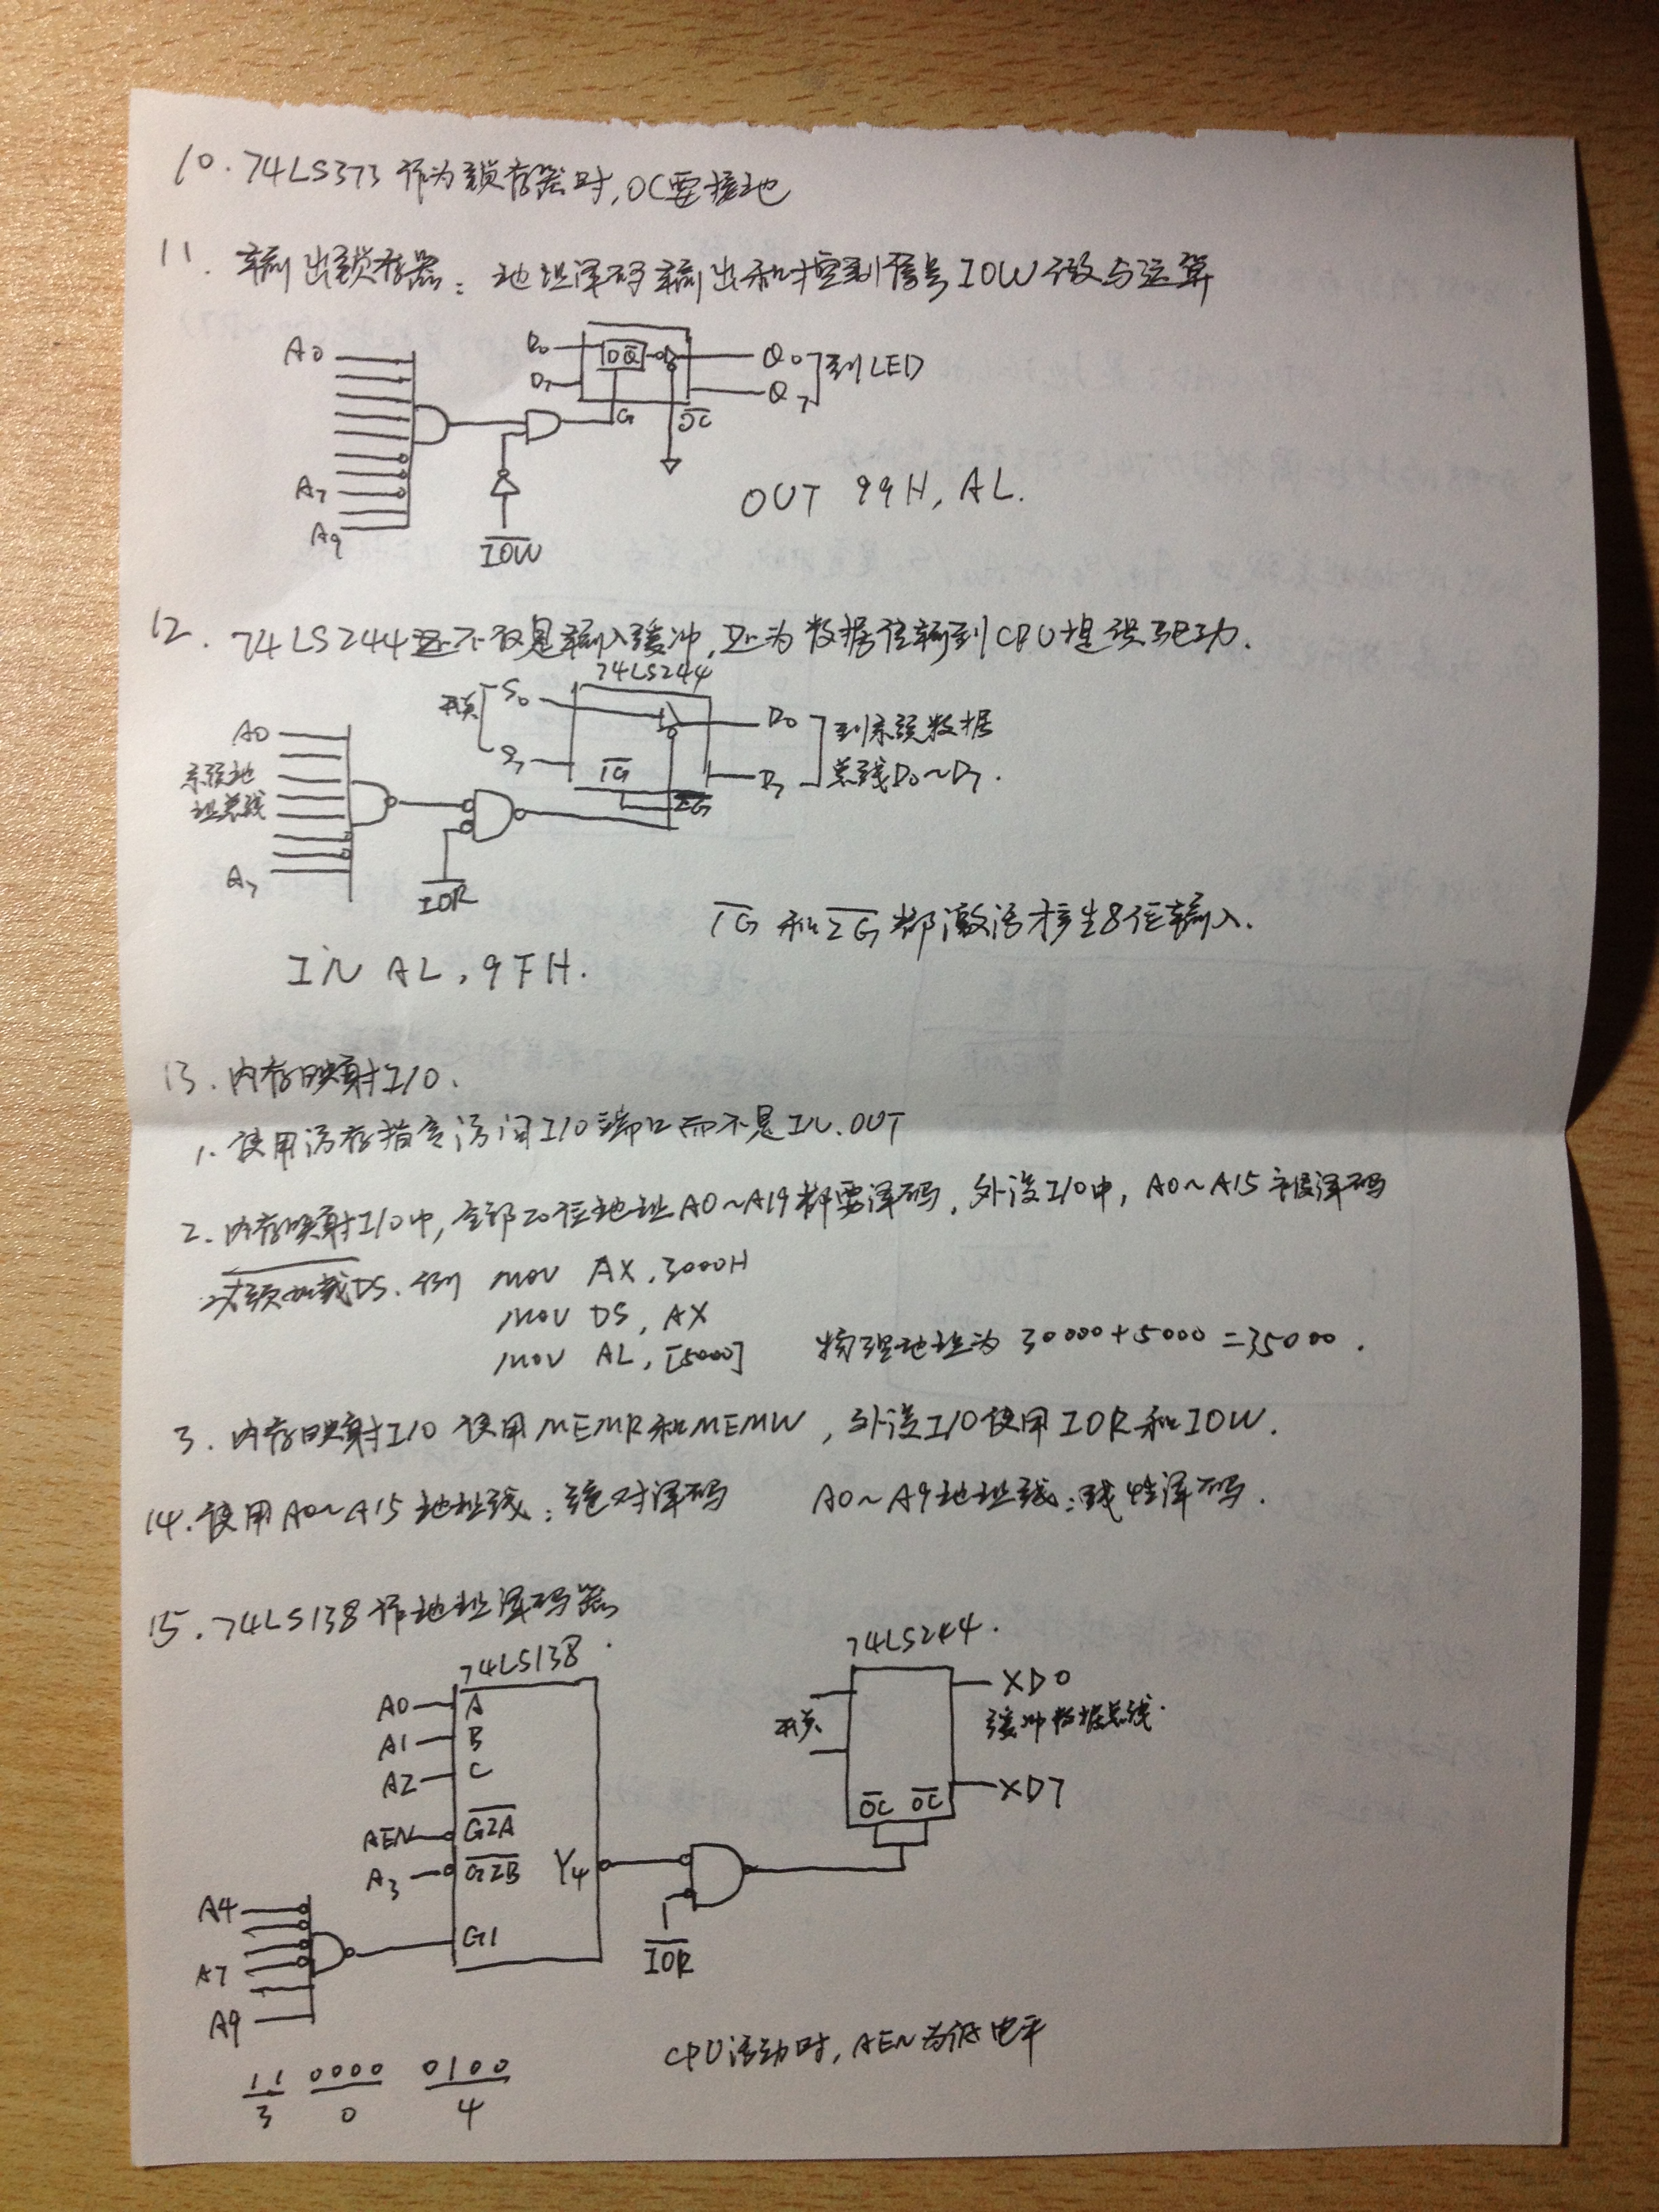 10. 74LS373作为锁存器时,OC要接地
11. 输出锁存器: 地址译码输出和控制信号IOW做与运算
A0
A7
A9
IOW
D0
D7
DQ
G
OC
Q0
Q7
到LED
OUT 99H, AL.
12. 74LS244还不仅是输入缓冲,还为数据传输到CPU提供驱动.
74LS244
开关
S0
S7
1G
2G
D0
D7
到系统数据
总线D0~D7.
A0
系统地
址总线
A7
IOR
1G和2G都激活才产生8位输入.
IN AL, 9FH.
13. 内存映射I/O.
1. 使用访存指令访问I/O端口而不是IN.OUT
2. 内存映射I/O中,全部20位地址A0~A19都要译码,外设I/O中,A0~A15译码
必须加载DS. 例 MOV AX, 3000H
MOV DS, AX
MOV AL, [5000] 物理地址为 30000+5000=35000.
3. 内存映射I/O使用MEMR和MEMW,外设I/O使用IOR和IOW.
14. 使用A0~A15地址线:绝对译码 A0~A9地址线:线性译码.
15. 74LS138作地址译码器
74LS138
A0 A
A1 B
A2 C
AEN G2A
A3 G2B
Y4
G1
A4
A7
A9
IOR
74LS244.
开关
OC OC
XD0
缓冲数据总线.
XD7
11 0000 0100
3 0 4
CPU活动时,AEN为低电平